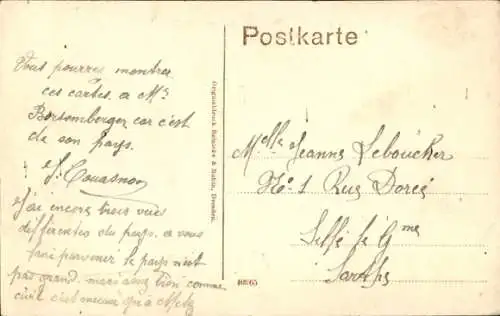 Postkarte
Vous pourres montrer
ces cartes a Mr
Bortemberger car c'est
de son pays.
J. Couasnon
J'ai encore trois vues
differentes du pays. a vous
faire parvenir le pays n'est
pas grand. mais aussi bien comme
civil c'est mieux qu'a Metz
Originaldruck Reinicke & Rubin, Dresden.
Melle Jeanne Leboucher
No 1 Rue Dorée
Sillé le Gme
Sarthe